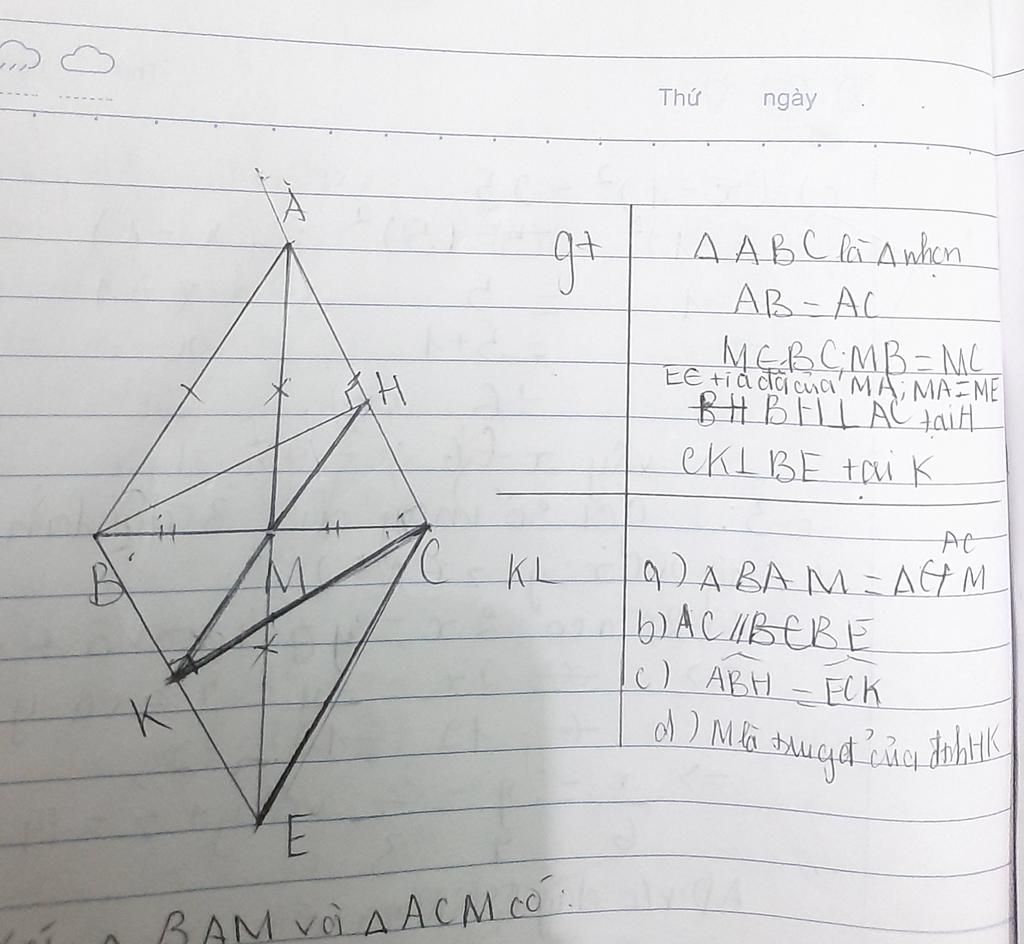 Thứ ngày . .
A
H
B
M
C
K
E
gt
Δ ABC là Δ nhọn
AB = AC
M ∈ BC; MB = MC
E ∈ tia đối của MA; MA = ME
BH BH ⊥ AC tại H
CK ⊥ BE tại K
KL
AC
a) Δ BAM = Δ M
b) AC // BE
c) ABH = ECK
d) M là trung đ' của đthHK
BAM với Δ ACM có: